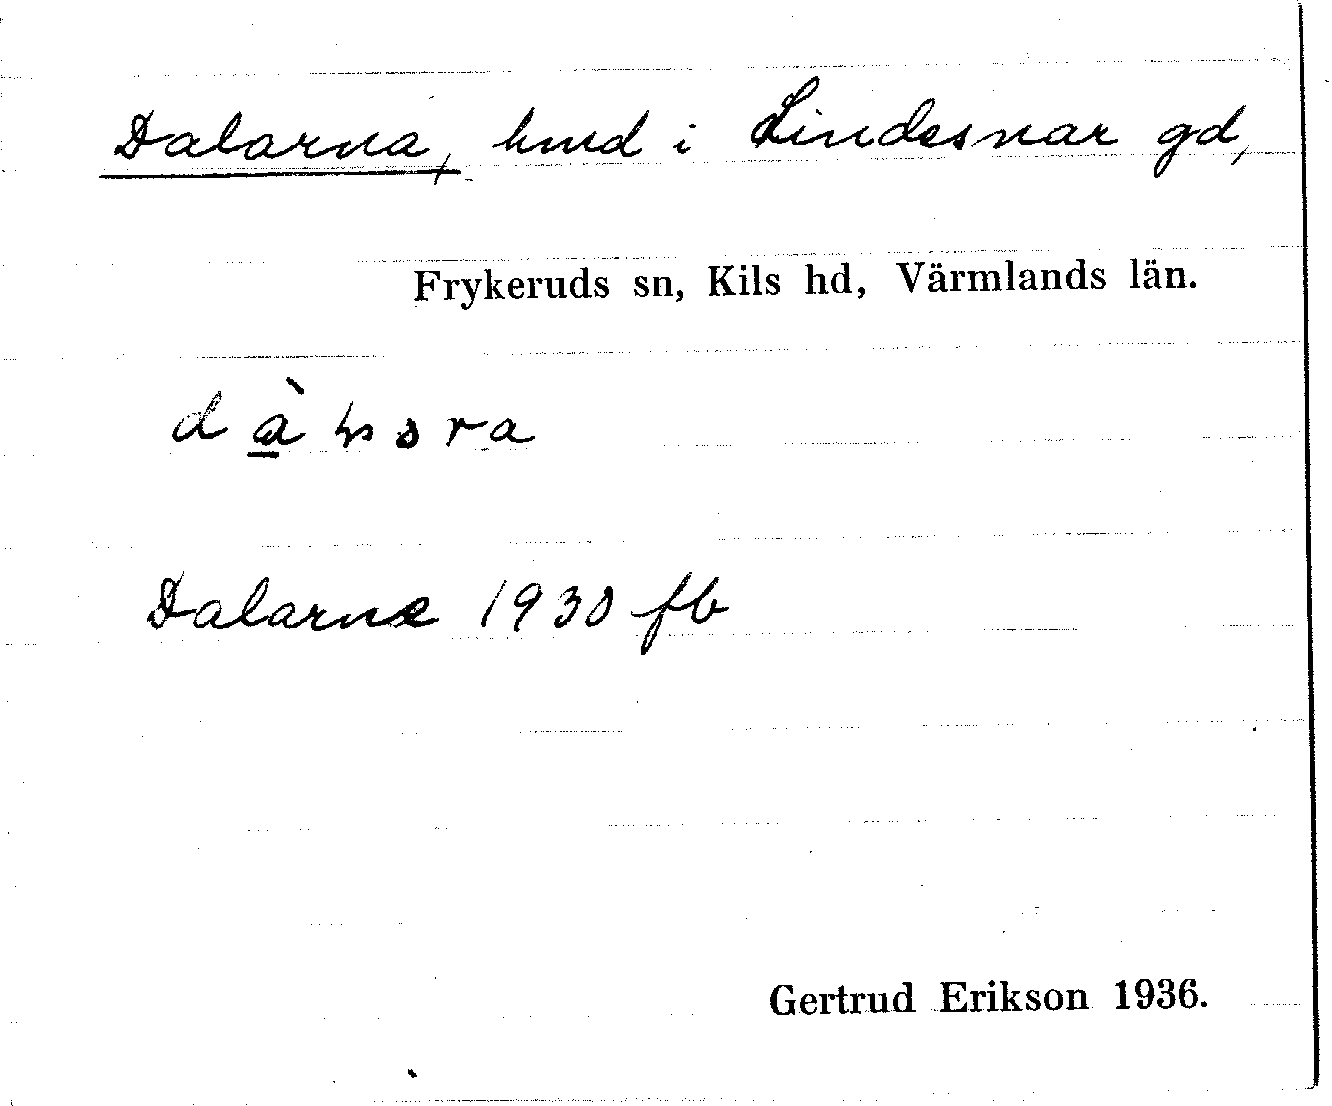 Dalarna, hmd i Lindesnar gd,
Frykeruds sn, Kils hd, Värmlands län.
Dalarne 1930 fb
Gertrud Erikson 1936.